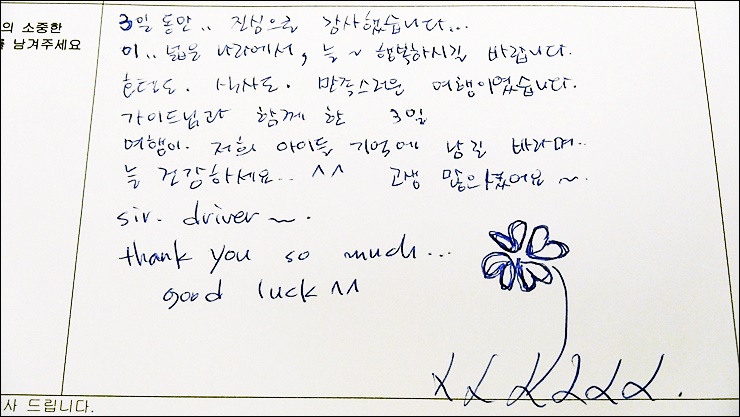 의 소중한
를 남겨주세요
3일 동안.. 진심으로 감사했습니다...
이.. 넓은 나라에서, 늘~ 행복하시길 바랍니다.
호텔도. 식사도. 만족스러운 여행이였습니다.
가이드님과 함께 한 3일
여행이. 저희 아이들 기억에 남길 바라며..
늘 건강하세요.. ^^ 고생 많으셨어요~.
sir. driver~.
thank you so much...
good luck ^^
사 드립니다.